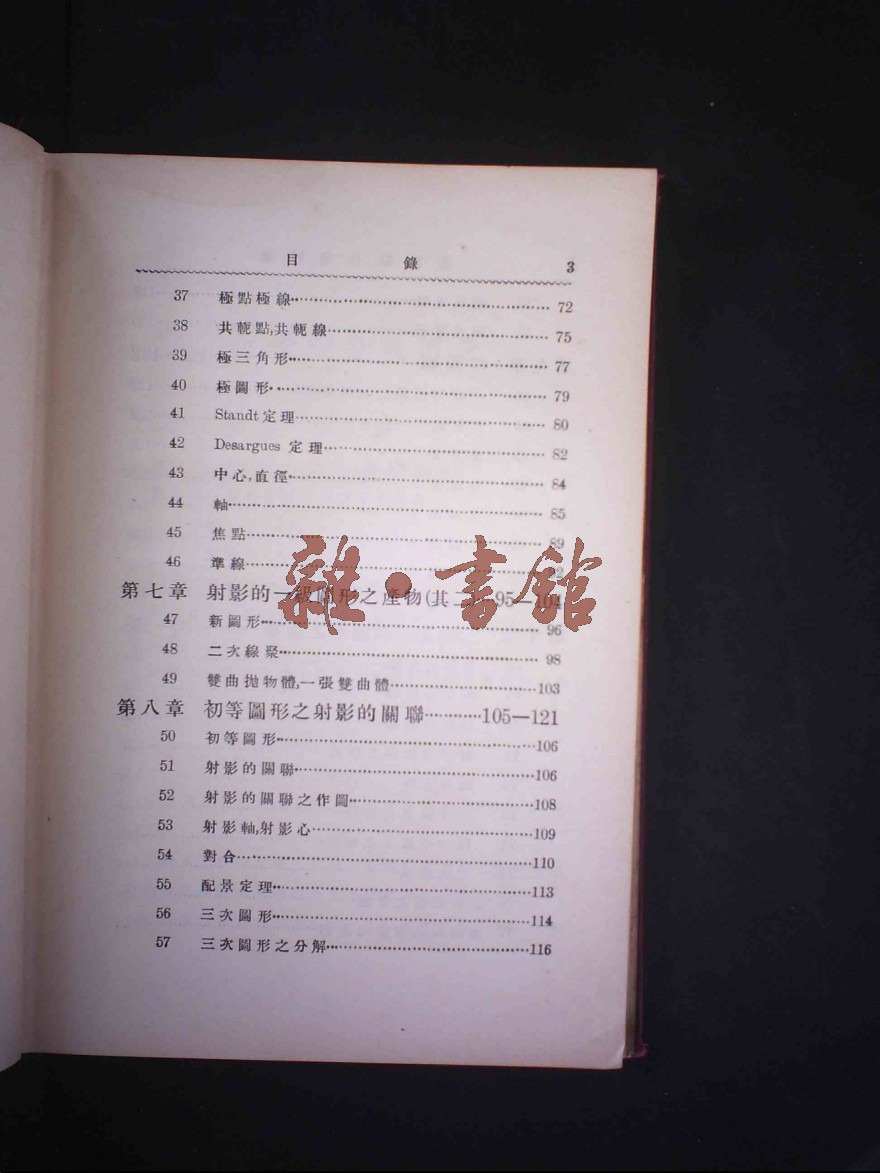 目錄 3
37 極點極線 72
38 共軛點,共軛線 75
39 極三角形 77
40 極圖形 79
41 Standt定理 80
42 Desargues 定理 82
43 中心,直徑 84
44 軸 85
45 焦點 89
46 準線
第七章 射影的一級圖形之產物(其二) 95—104
47 新圖形 96
48 二次線聚 98
49 雙曲拋物體,一張雙曲體 103
第八章 初等圖形之射影的關聯 105—121
50 初等圖形 106
51 射影的關聯 106
52 射影的關聯之作圖 108
53 射影軸,射影心 109
54 對合 110
55 配景定理 113
56 三次圖形 114
57 三次圖形之分解 116
雜·書館